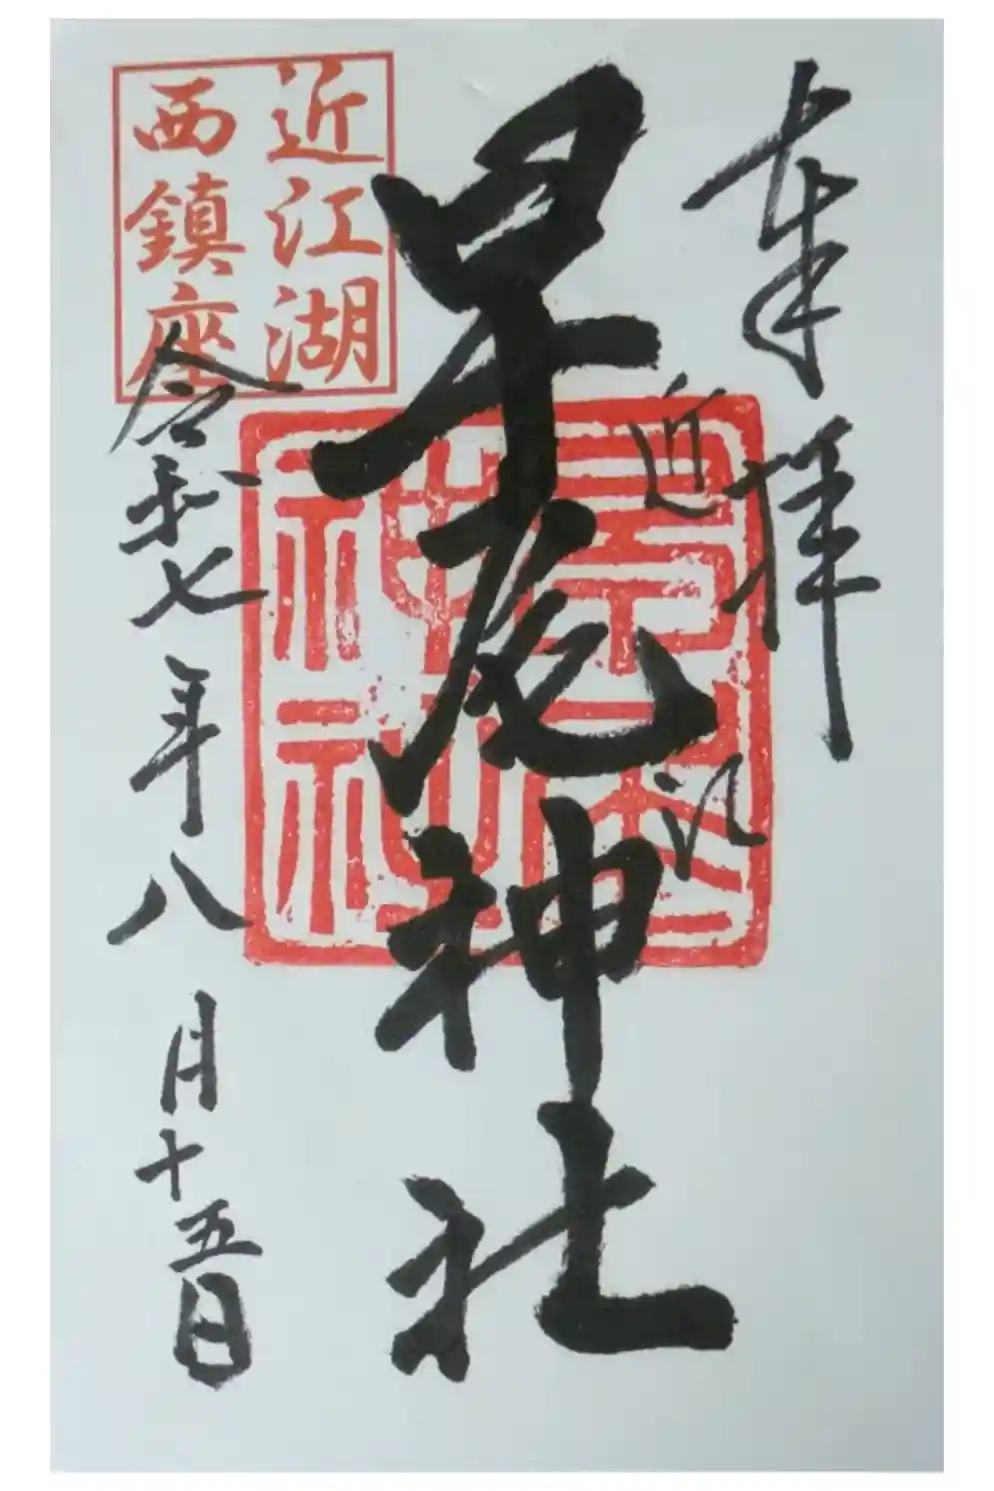 奉拝
近江
早尾神社
近江湖
西鎮座
令和七年八月十五日